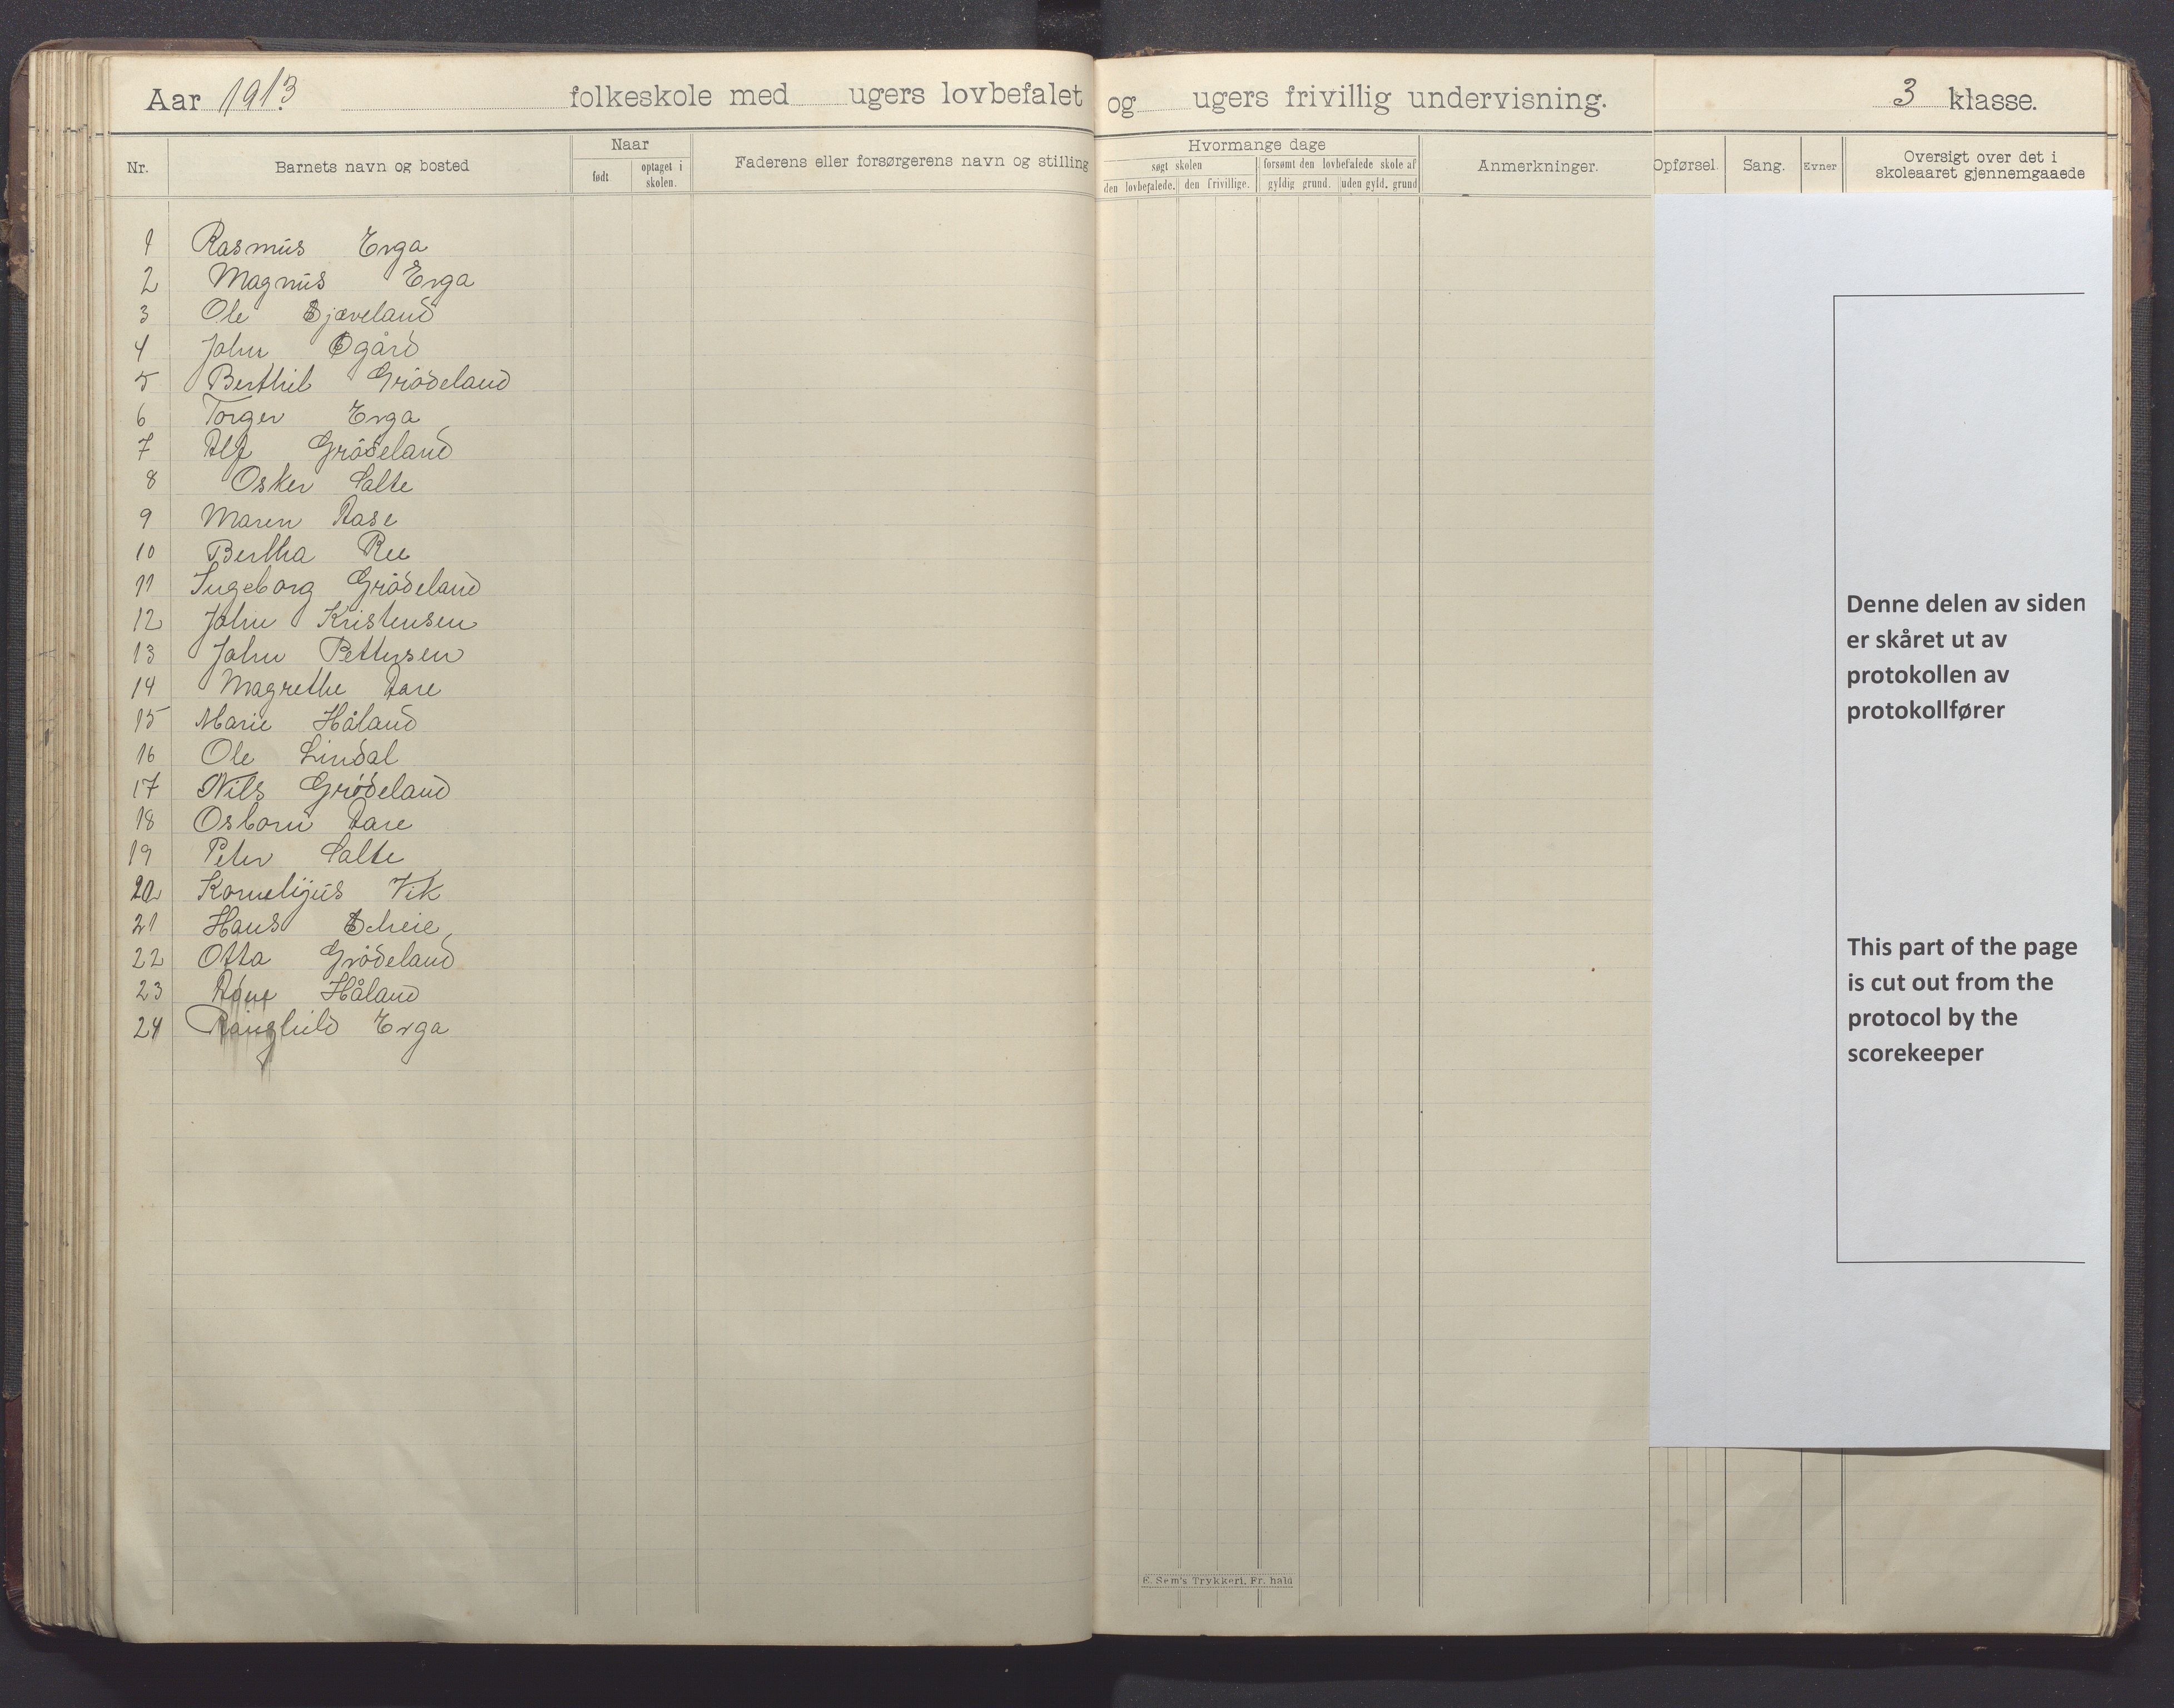 Aar 1913 folkeskole med ugers lovbefalet og ugers frivillig undervisning. 3 klasse.
Nr.
Barnets navn og bosted
Naar
født
optaget i skolen.
Faderens eller forsørgerens navn og stilling
Hvormange dage
søgt skolen
forsømt den lovbefalede skole af
den lovbefalede.
den frivillige.
gyldig grund.
uden gyld. grund
Anmerkninger.
Opførsel.
Sang.
Evner
Oversigt over det i
skoleaaret gjennemgaaede
1 Rasmus Erga
2 Magnus Erga
3 Ole Bjæveland
4 John Øgård
5 Berthil Grödeland
6 Torger Erga
7 Alf Grödeland
8 Osker Salte
9 Maren Aase
10 Bertha Ree
11 Ingeborg Grödeland
12 John Kristensen
13 John Pettersen
14 Magrethe Aare
15 Marie Håland
16 Ole Lindal
17 Nils Grödeland
18 Osborn Aare
19 Peter Salte
20 Kornelijus Vik
21 Hans Scheie
22 Otta Grödeland
23 Håland
24 Ranghild Erga
Denne delen av siden
er skåret ut av
protokollen av
protokollfører
This part of the page
is cut out from the
protocol by the
scorekeeper
E. Sem's Trykkeri, Fr. hald